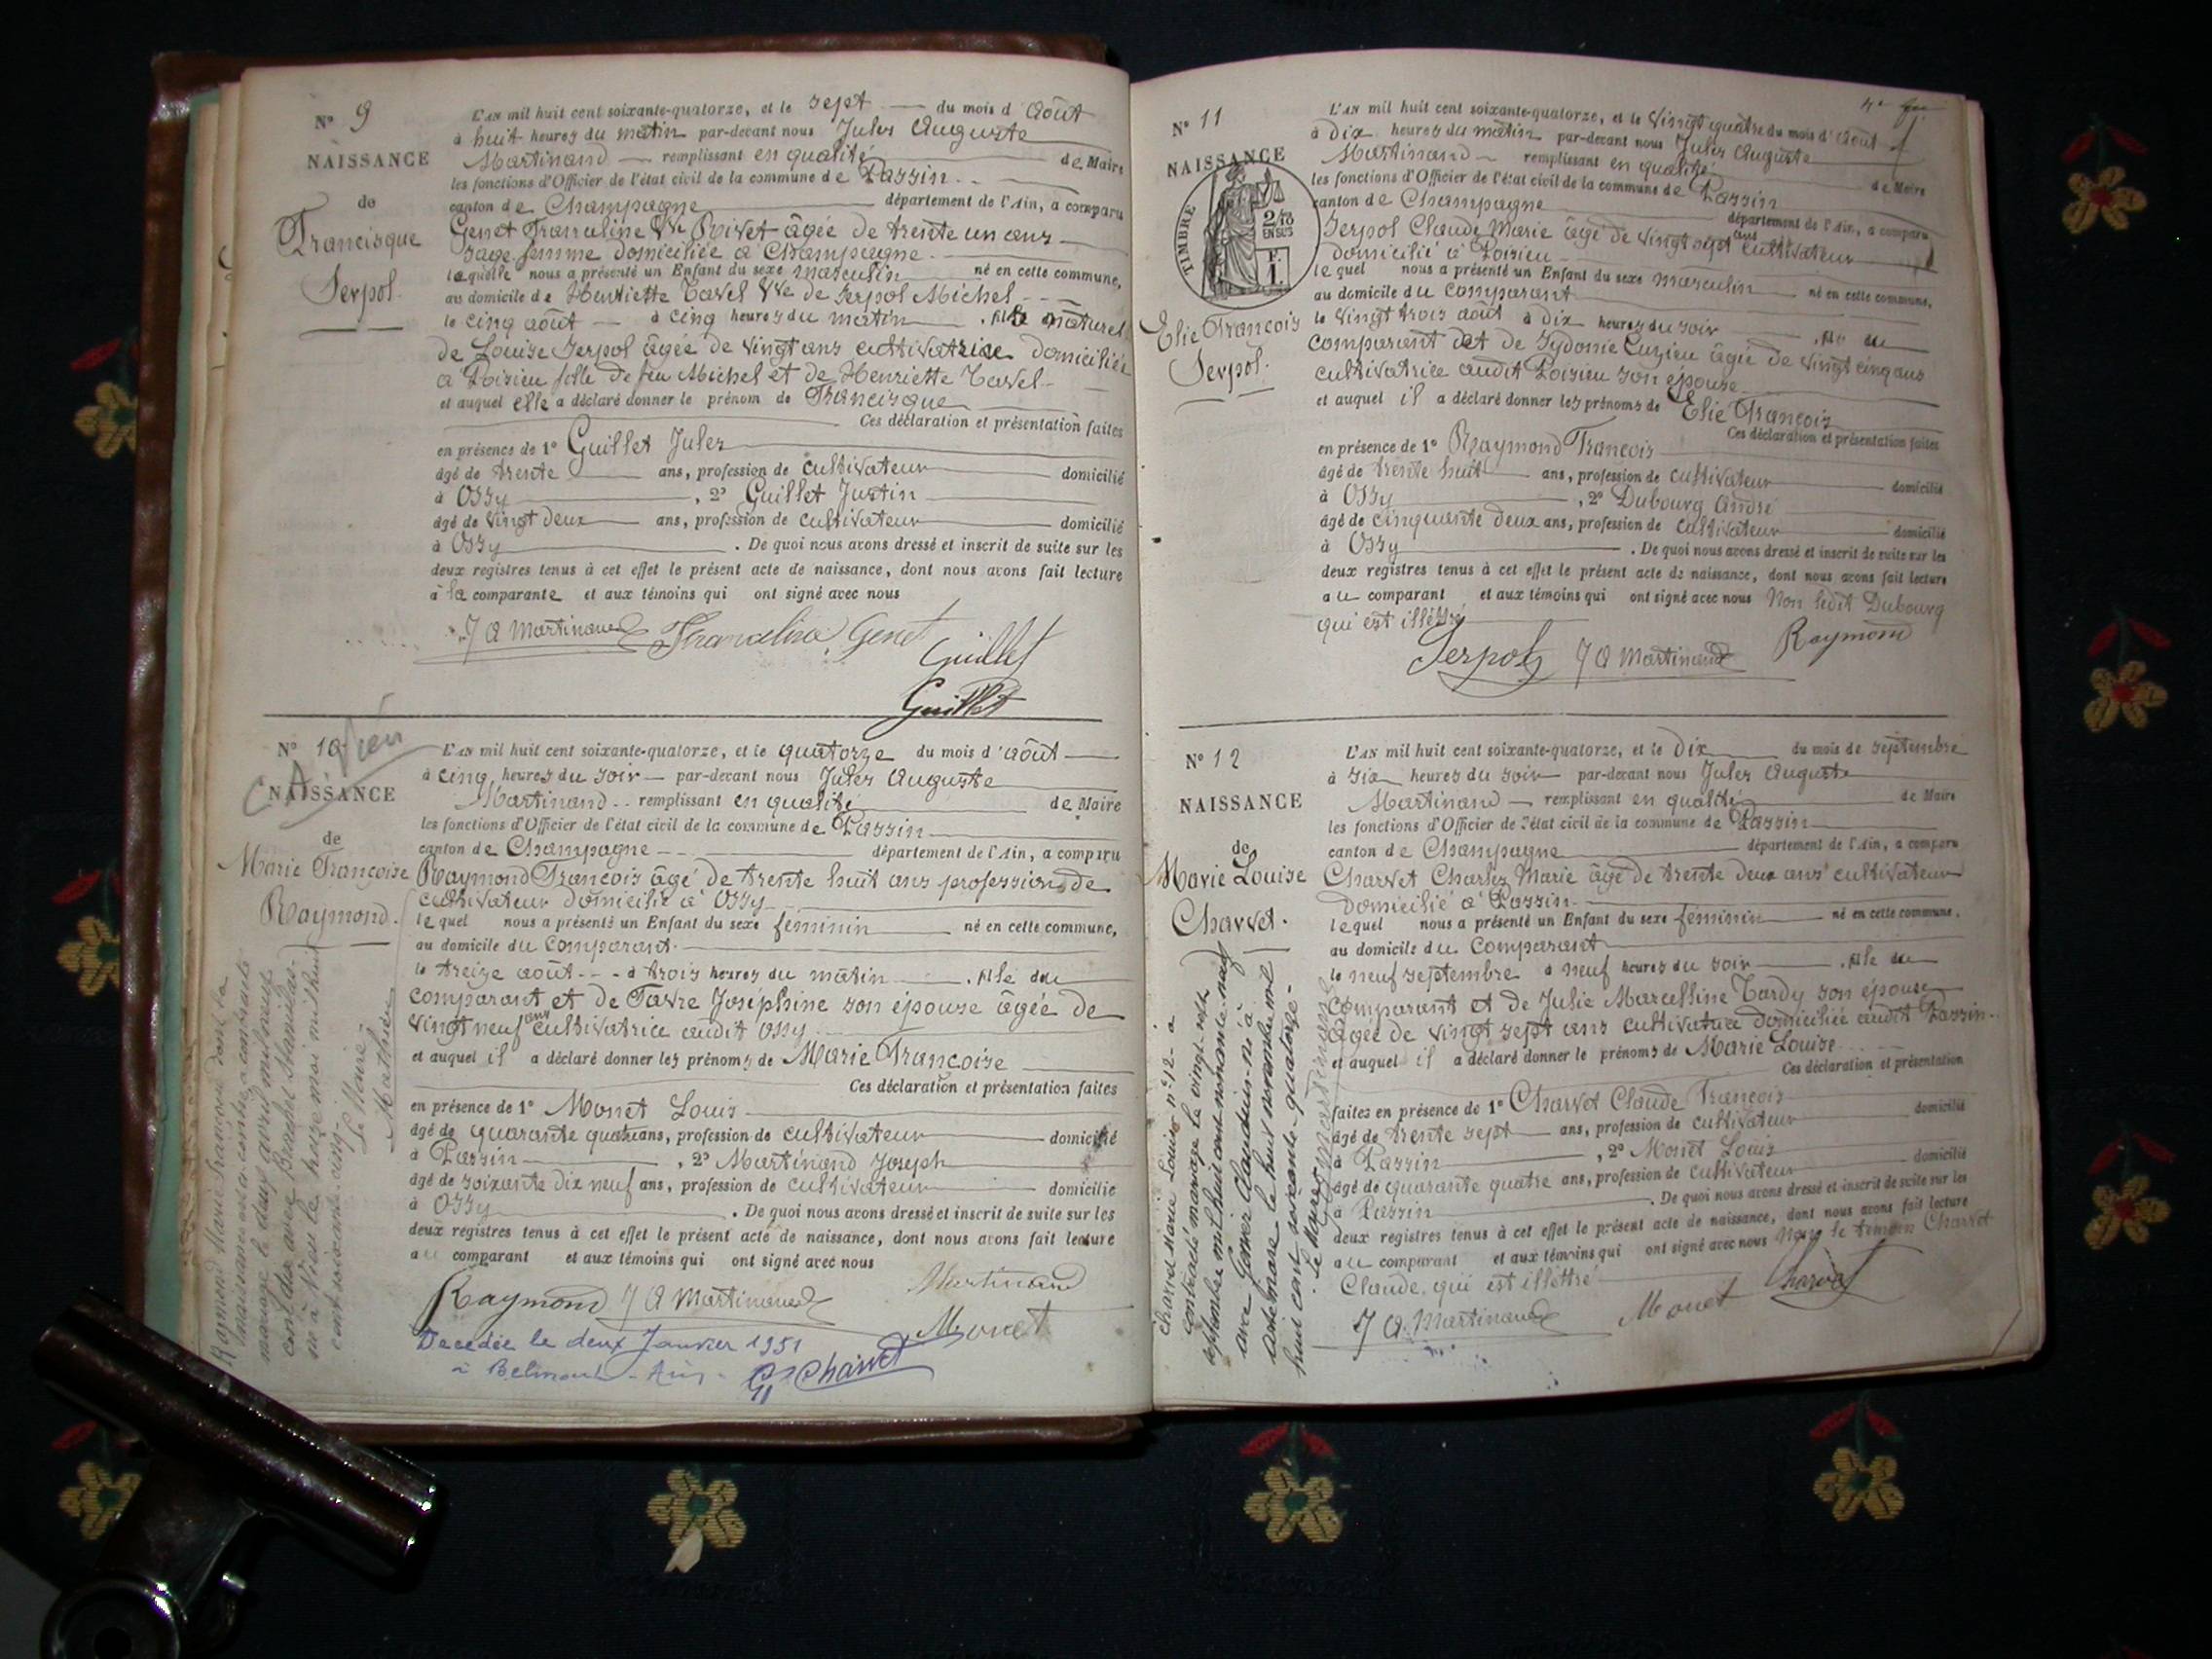 N° 9
NAISSANCE
de
Francisque
Serpol.
L'AN mil huit cent soixante-quatorze, et le sept du mois d'août
à huit heures du matin par-devant nous Jules Auguste
Martinand remplissant en qualité de Maire
les fonctions d'Officier de l'état civil de la commune de Passin
canton de Champagne département de l'Ain, a comparu
Genet Francline Vve Rivet âgée de trente un ans
sage femme domiciliée à Champagne.
laquelle nous a présenté un Enfant du sexe masculin né en cette commune,
au domicile de Henriette Tavel Vve de Serpol Michel
le cinq août à cinq heures du matin, fils naturel
de Louise Serpol âgée de vingt ans cultivatrice domiciliée
à Poisieu fille de feu Michel et de Henriette Tavel
et auquel elle a déclaré donner le prénom de Francisque
Ces déclaration et présentation faites
en présence de 1° Guillet Jules
âgé de trente ans, profession de cultivateur domicilié
à Ossy, 2° Guillet Justin
âgé de vingt deux ans, profession de cultivateur domicilié
à Ossy. De quoi nous avons dressé et inscrit de suite sur les
deux registres tenus à cet effet le présent acte de naissance, dont nous avons fait lecture
à la comparante et aux témoins qui ont signé avec nous
J A Martinand Francline Genet Guillet
Guillet
N° 10
NAISSANCE
de
Marie Françoise
Raymond.
L'AN mil huit cent soixante-quatorze, et le quatorze du mois d'août
à cinq heures du soir par-devant nous Jules Auguste
Martinand remplissant en qualité de Maire
les fonctions d'Officier de l'état civil de la commune de Passin
canton de Champagne département de l'Ain, a comparu
Raymond François âgé de trente huit ans profession de
cultivateur domicilié à Ossy
lequel nous a présenté un Enfant du sexe féminin né en cette commune,
au domicile du comparant.
le treize août à trois heures du matin, fille du
comparant et de Favre Joséphine son épouse âgée de
vingt neuf ans cultivatrice audit Ossy
et auquel il a déclaré donner les prénoms de Marie Françoise
Ces déclaration et présentation faites
en présence de 1° Monet Louis
âgé de quarante quatre ans, profession de cultivateur domicilié
à Passin, 2° Martinand Joseph
âgé de soixante dix neuf ans, profession de cultivateur domicilié
à Ossy. De quoi nous avons dressé et inscrit de suite sur les
deux registres tenus à cet effet le présent acte de naissance, dont nous avons fait lecture
au comparant et aux témoins qui ont signé avec nous
Raymond J A Martinand Martinand
Monet
Décédée le deux Janvier 1951
à Belmont - Ain - Charvet
Raymond Marie françoise dont la
naissance est ci-contre a contracté
mariage le deux avril mil neuf
cent dix avec Stanislas
né à Vieu le treize mai mil huit
cent soixante cinq.
Le Maire
Mathieu
N° 11
NAISSANCE
TIMBRE
2/10 EN SUS
F. 1
Elie François
Serpol.
L'AN mil huit cent soixante-quatorze, et le vingt quatre du mois d'août
à dix heures du matin par-devant nous Jules Auguste
Martinand remplissant en qualité de Maire
les fonctions d'Officier de l'état civil de la commune de Passin
canton de Champagne département de l'Ain, a comparu
Serpol Claude Marie âgé de vingt sept ans cultivateur
domicilié à Poisieu
lequel nous a présenté un Enfant du sexe masculin né en cette commune,
au domicile du comparant
le vingt trois août à dix heures du soir, fils du
comparant et de Sydonie Luzieu âgée de vingt cinq ans
cultivatrice audit Poisieu son épouse
et auquel il a déclaré donner les prénoms de Elie François
Ces déclaration et présentation faites
en présence de 1° Raymond François
âgé de trente huit ans, profession de cultivateur domicilié
à Ossy, 2° Dubourg André
âgé de cinquante deux ans, profession de cultivateur domicilié
à Ossy. De quoi nous avons dressé et inscrit de suite sur les
deux registres tenus à cet effet le présent acte de naissance, dont nous avons fait lecture
au comparant et aux témoins qui ont signé avec nous Non ledit Dubourg
qui est illétré
Serpol J A Martinand Raymond
N° 12
NAISSANCE
de
Marie Louise
Charvet.
L'AN mil huit cent soixante-quatorze, et le dix du mois de septembre
à six heures du soir par-devant nous Jules Auguste
Martinand remplissant en qualité de Maire
les fonctions d'Officier de l'état civil de la commune de Passin
canton de Champagne département de l'Ain, a comparu
Charvet Charles Marie âgé de trente deux ans cultivateur
domicilié à Passin
lequel nous a présenté un Enfant du sexe féminin né en cette commune,
au domicile du comparant
le neuf septembre à neuf heures du soir, fille du
comparant et de Julie Marcelline Tardy son épouse
âgée de vingt sept ans cultivatrice domiciliée audit Passin
et auquel il a déclaré donner le prénoms de Marie Louise
Ces déclaration et présentation
faites en présence de 1° Charvet Claude François
âgé de trente sept ans, profession de cultivateur domicilié
à Passin, 2° Monet Louis
âgé de quarante quatre ans, profession de cultivateur domicilié
à Passin. De quoi nous avons dressé et inscrit de suite sur les
deux registres tenus à cet effet le présent acte de naissance, dont nous avons fait lecture
au comparant et aux témoins qui ont signé avec nous Non le témoin Charvet
Claude, qui est illétré
J A Martinand Monet Charvet
Charvet Marie Louise n° 12 a
contracté mariage le vingt sept
septembre mil huit cent nonante-neuf
avec Claudius né à
le huit novembre mil
huit cent soixante-quatorze
Le Maire